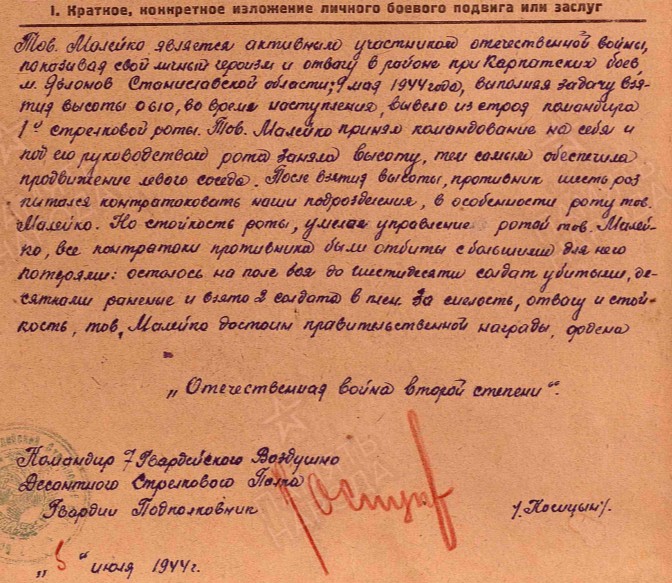 I. Краткое, конкретное изложение личного боевого подвига или заслуг
Тов. Малейко является активным участником отечественной войны,
показывая свой личный героизм и отвагу в районе при Карпатских боев
м. Яблонов Станиславской области; 9 мая 1944 года, выполняя задачу взя-
тия высоты 0610, во время наступления, вывело из строя командира
1й стрелковой роты. Тов. Малейко принял командование на себя и
под его руководством рота заняла высоту, тем самым обеспечила
продвижение левого соседа. После взятия высоты, противник шесть раз
пытался контратаковать наши подразделения, в особенности роту тов.
Малейко. Но стойкость роты, умелая управление ротой тов. Малей-
ко, все контратаки противника были отбиты с большими для него
потерями: осталось на поле боя до шестидесяти солдат убитыми, де-
сятками ранение и взято 2 солдата в плен. За смелость, отвагу и стой-
кость, тов. Малейко достоин правительственной награды, ордена
„Отечественная война второй степени".
Командир 7 Гвардейского Воздушно
Десантного Стрелкового Полка
Гвардии Подполковник /Косицын/.
„5" июля 1944 г.